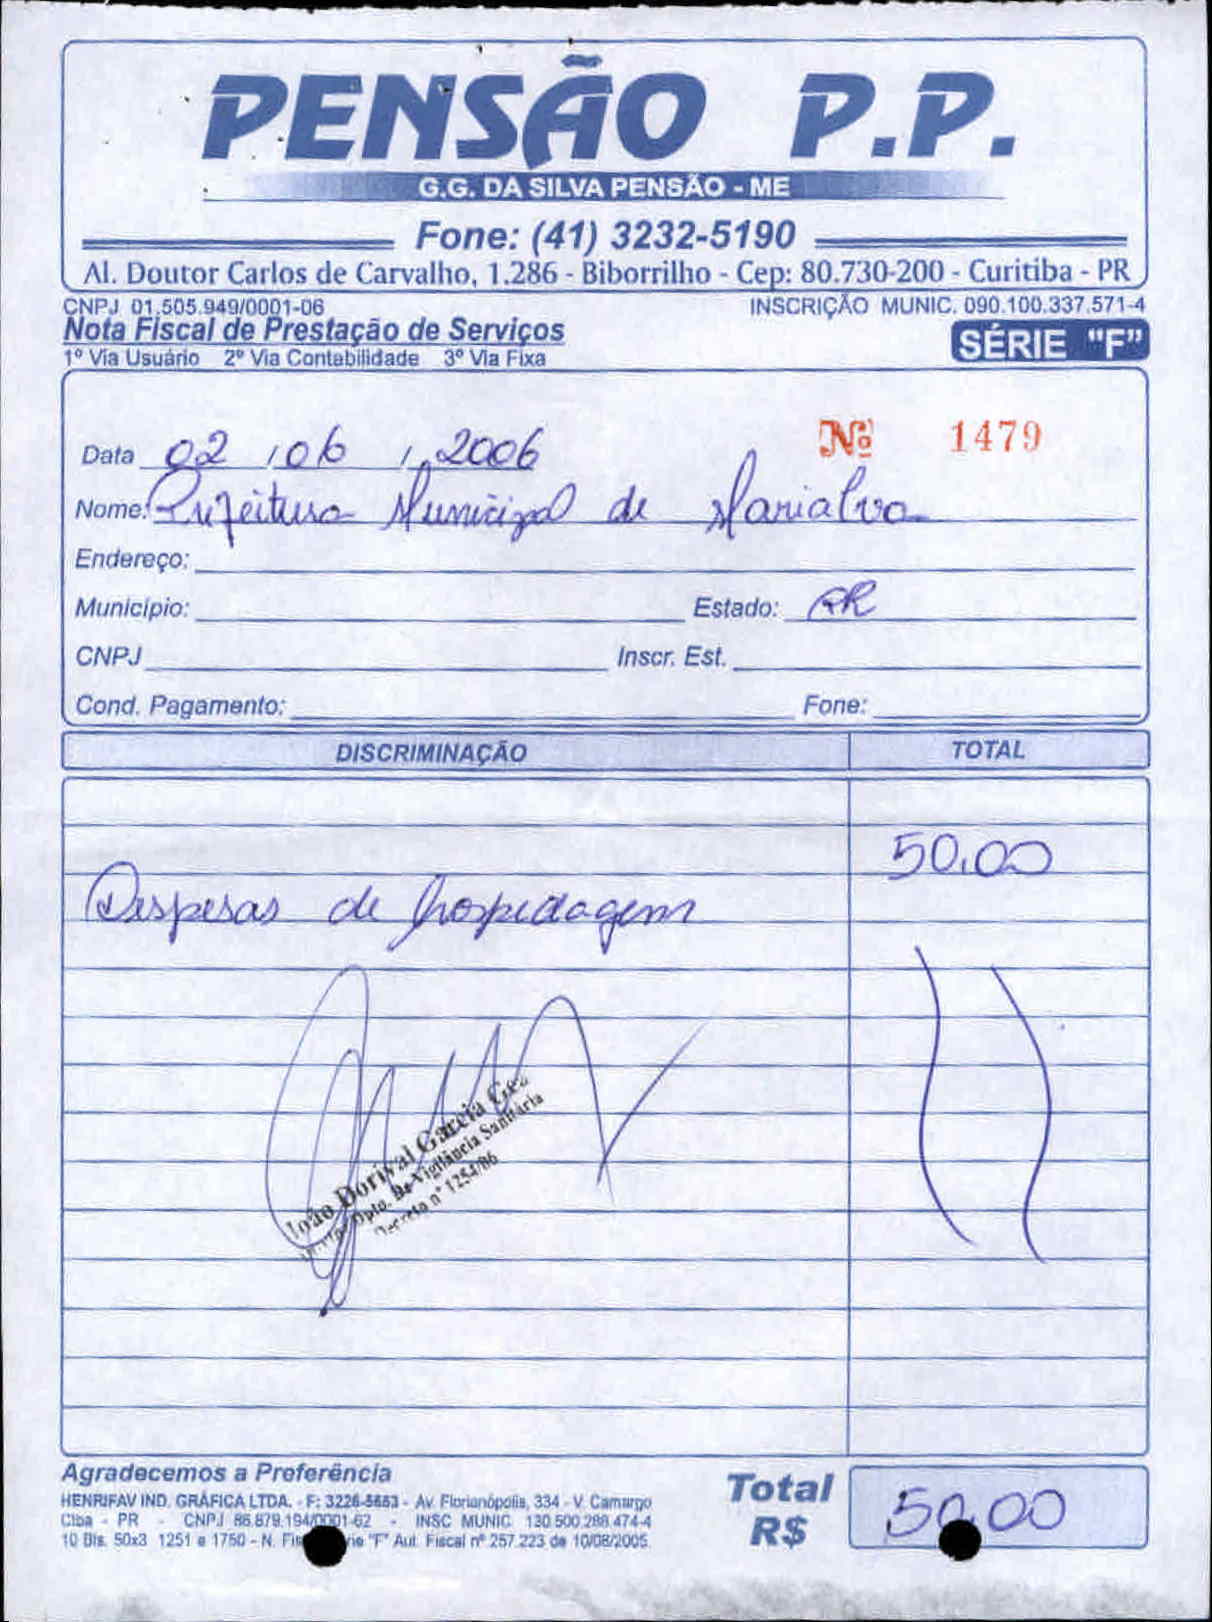 PENSÃO P.P.
G.G. DA SILVA PENSÃO - ME
Fone: (41) 3232-5190
Al. Doutor Carlos de Carvalho, 1.286 - Biborrilho - Cep: 80.730-200 - Curitiba - PR
CNPJ 01.505.949/0001-06 INSCRIÇÃO MUNIC. 090.100.337.571-4
Nota Fiscal de Prestação de Serviços
SÉRIE "F"
1º Via Usuário 2º Via Contabilidade 3º Via Fixa
Nº 1479
Data 02 / 06 / 2006
Nome: Prefeitura Municipal de Marialva
Endereço:
Município: Estado: PR
CNPJ Inscr. Est.
Cond. Pagamento: Fone:
DISCRIMINAÇÃO TOTAL
50,00
Despesas de hospedagem
João Dorival Garcia
Dpto. De Vigilância Sanitária
Decreto nº 1254/06
Agradecemos a Preferência
HENRIFAV IND. GRÁFICA LTDA. - F: 3226-5653 - Av. Florianópolis, 334 - V. Camargo
Ctba - PR - CNPJ 86.879.194/0001-62 - INSC MUNIC 130.500.288.474-4
10 Bls. 50x3 1251 a 1750 - N. "F" Aut. Fiscal nº 257.223 de 10/08/2005.
Total
R$ 50,00